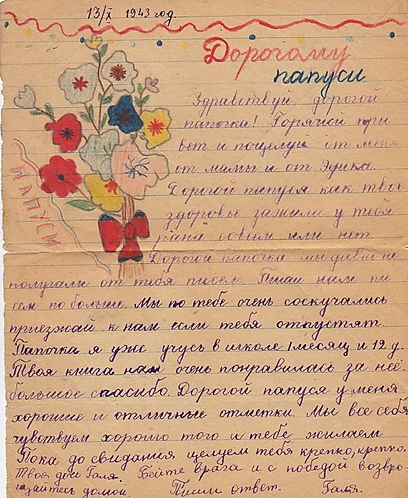 13/X 1943 год.
Дорогому
папуси
Здравствуй дорогой
папочка! Горячой при
вет и поцелуи от меня
от мамы и от Эдика.
Дорогой папуся как твоё
здоровье зажили у тебя
рана совсем или нет.
ПАПУСИ
Дорогой папочка мы давно не
получали от тебя писем. Пиши нам пи
сем по больше. Мы по тебе очень соскучались
приезжай к нам если тебя отпустят.
Папочка я уже учусь в школе 1 месяц и 12 д.
Твоя книга нам очень понравилась за неё
большое спасибо. Дорогой папуся у меня
хорошие и отличные отметки. Мы все себя
чувствуем хорошо того и тебе желаем
Пока до свидания целуем тебя крепко, крепко.
Твоя доч Галя. Бейте врага и с победой возвра-
щайтесь домой. Пиши ответ. Галя.